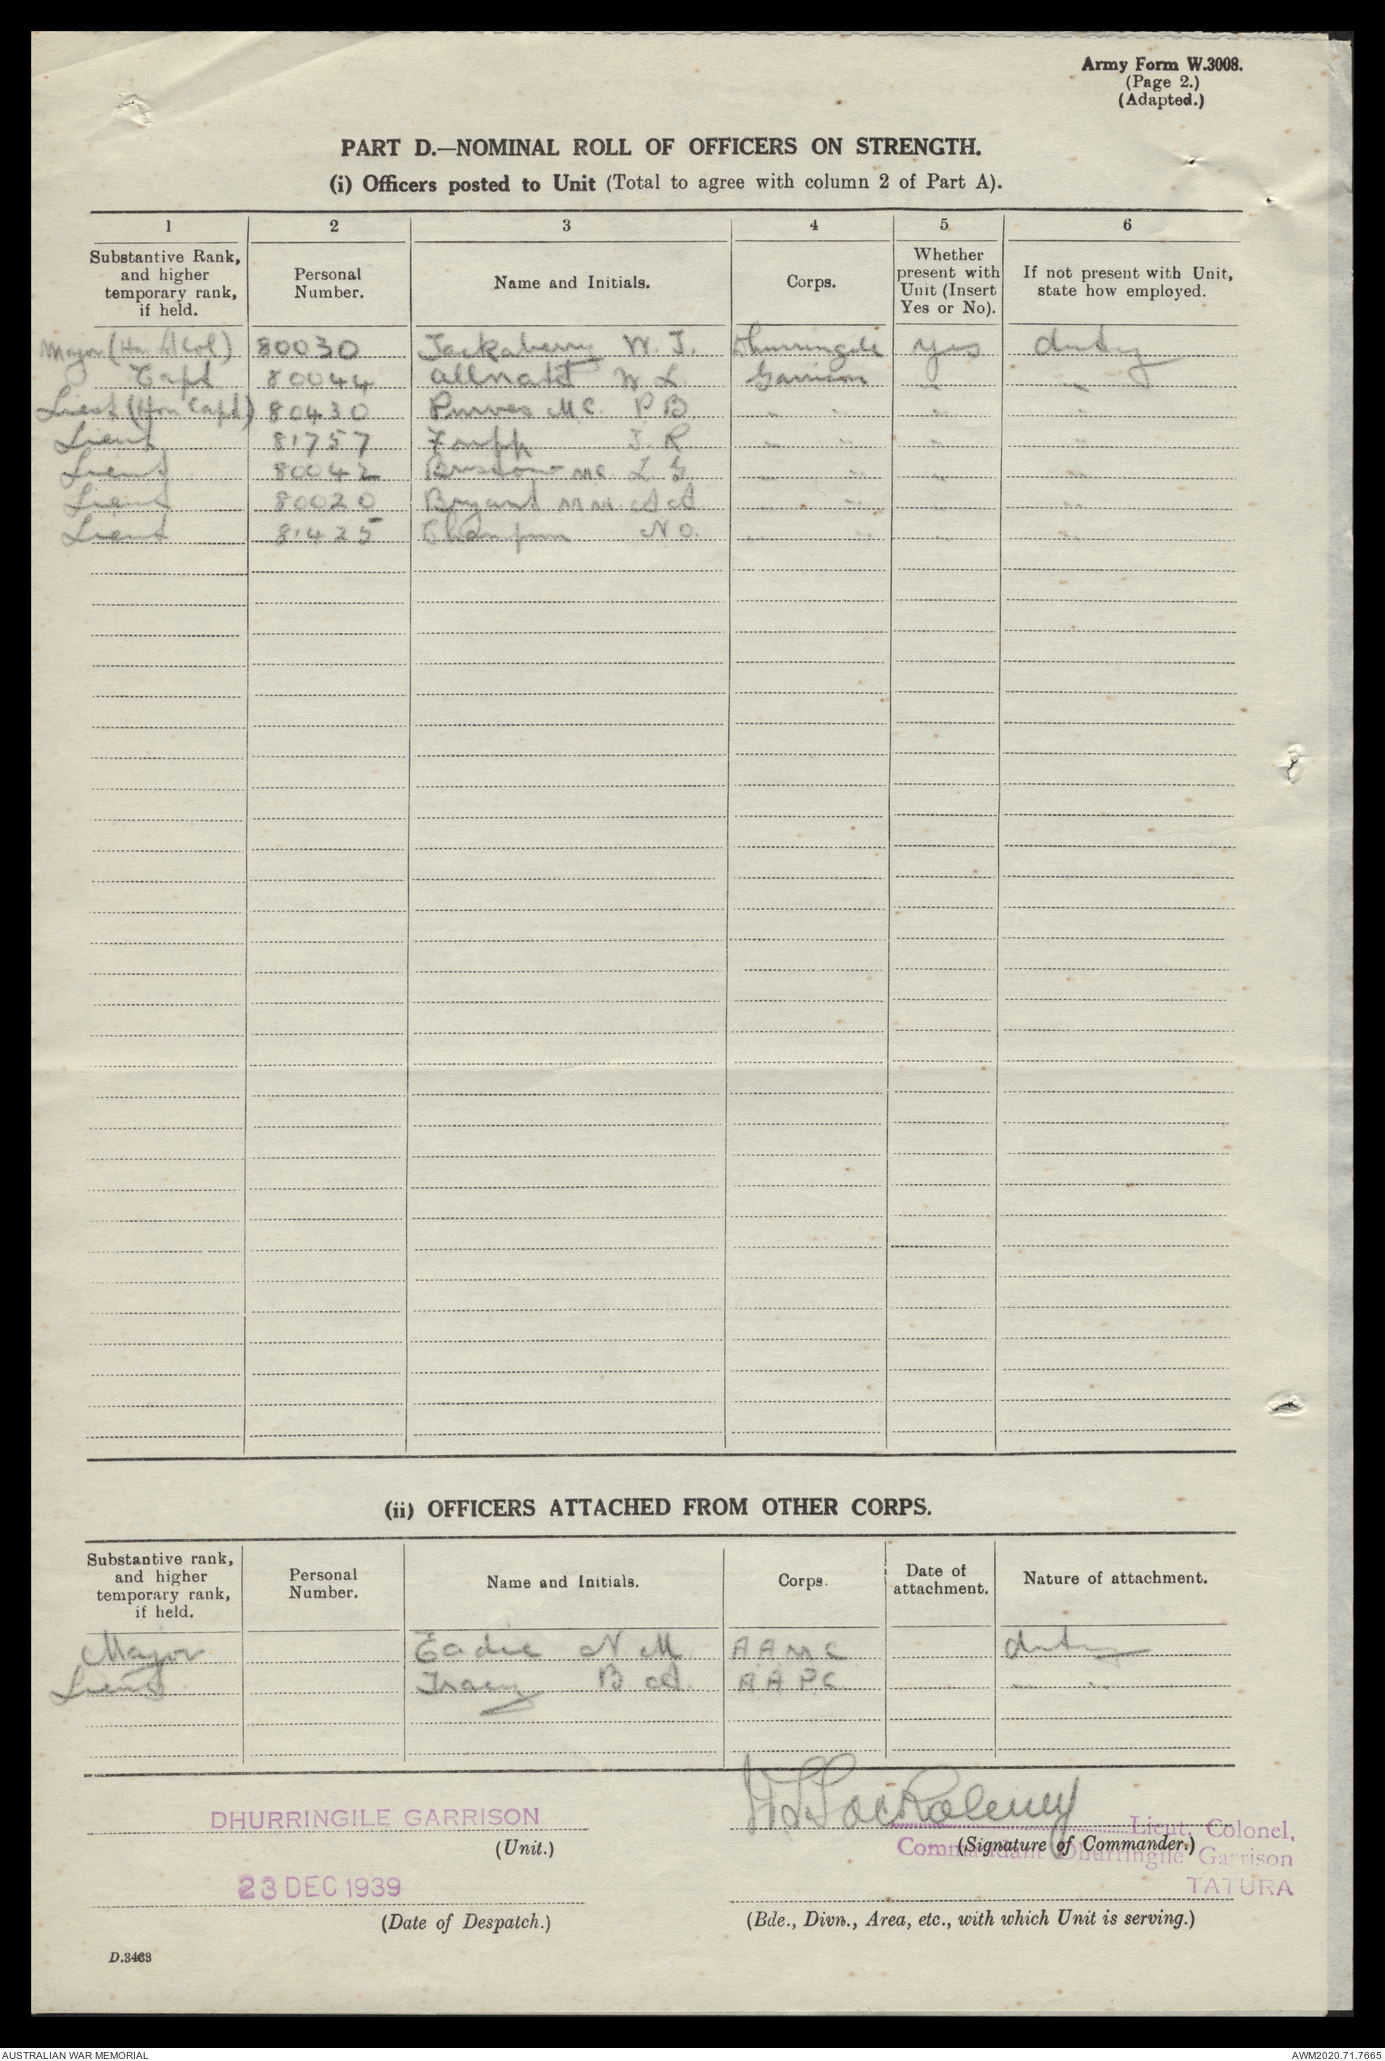 Army Form W.3008.
(Page 2.)
(Adapted.)
PART D.—NOMINAL ROLL OF OFFICERS ON STRENGTH.
(i) Officers posted to Unit (Total to agree with column 2 of Part A).
1 2 3 4 5 6
Substantive Rank, and higher temporary rank, if held. Personal Number. Name and Initials. Corps. Whether present with Unit (Insert Yes or No). If not present with Unit, state how employed.
Major (Hon Lt Col) 80030 Jackaberry W. J. Dhurringile yes duty
Capt 80044 Allnatt W L Garrison " "
Lieut (Hon Capt) 80430 Purves MC. P B " " " "
Lieut 81757 J. R " " " "
Lieut 80042 Briscoe MC. L G " " " "
Lieut 80020 Bryant MM. A A " " " "
Lieut 81425 Champion N O. " " " "
(ii) OFFICERS ATTACHED FROM OTHER CORPS.
Substantive rank, and higher temporary rank, if held. Personal Number. Name and Initials. Corps. Date of attachment. Nature of attachment.
Major Eadie N M AAMC duty
Lieut Tracey B A. AAPC " "
DHURRINGILE GARRISON
(Unit.)
W J Jackaberry
Lieut. Colonel,
(Signature of Commander.)
Commandant Dhurringile Garrison
TATURA
23 DEC 1939
(Date of Despatch.)
(Bde., Divn., Area, etc., with which Unit is serving.)
D.3463
AUSTRALIAN WAR MEMORIAL
AWM2020.71.7665